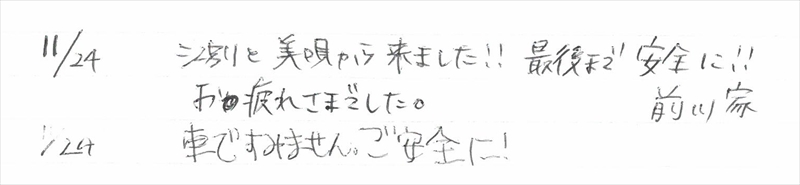 11/24 江別と美唄から来ました!! 最後まで安全に!!
お疲れさまでした。 前川家
11/24 車ですみません。ご安全に!